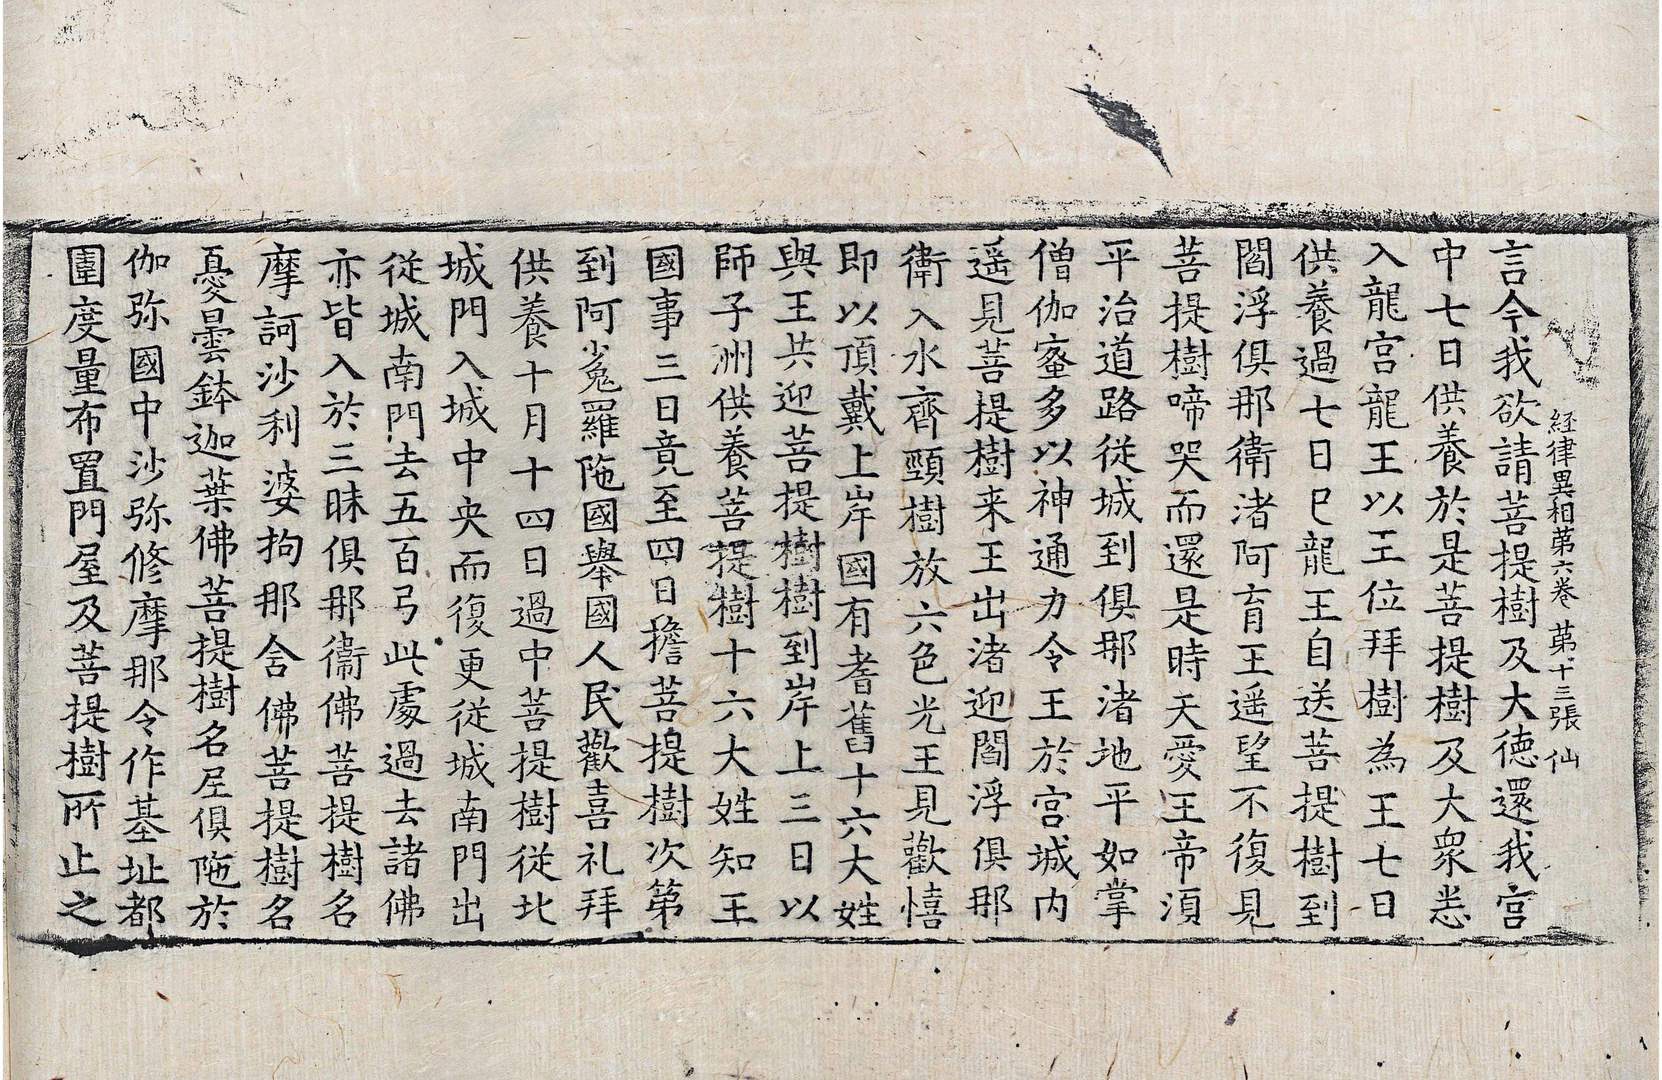 経律異相苐六卷 苐十三張 仙
言今我欲請菩提樹及大德還我宮
中七日供養於是菩提樹及大衆悉
入龍宮龍王以王位拜樹為王七日
供養過七日已龍王自送菩提樹到
閻浮俱那衛渚阿育王遥望不復見
菩提樹啼哭而還是時天愛王帝湏
平治道路從城到俱那渚地平如掌
僧伽蜜多以神通力令王於宮城内
遥見菩提樹来王出渚迎閻浮俱那
衛入水齊頸樹放六色光王見歡憘
即以頂戴上岸國有耆舊十六大姓
與王共迎菩提樹樹到岸上三日以
師子洲供養菩提樹十六大姓知王
國事三日竟至四日擔菩提樹次第
到阿㝹羅陁國舉國人民歡喜礼拜
供養十月十四日過中菩提樹從北
城門入城中央而復更從城南門出
從城南門去五百弓此處過去諸佛
亦皆入於三昧俱那衞佛菩提樹名
摩訶沙利婆拘那舍佛菩提樹名
憂曇鉢迦葉佛菩提樹名尼俱陁於
伽弥國中沙弥修摩那令作基址都
圍度量布置門屋及菩提樹所止之